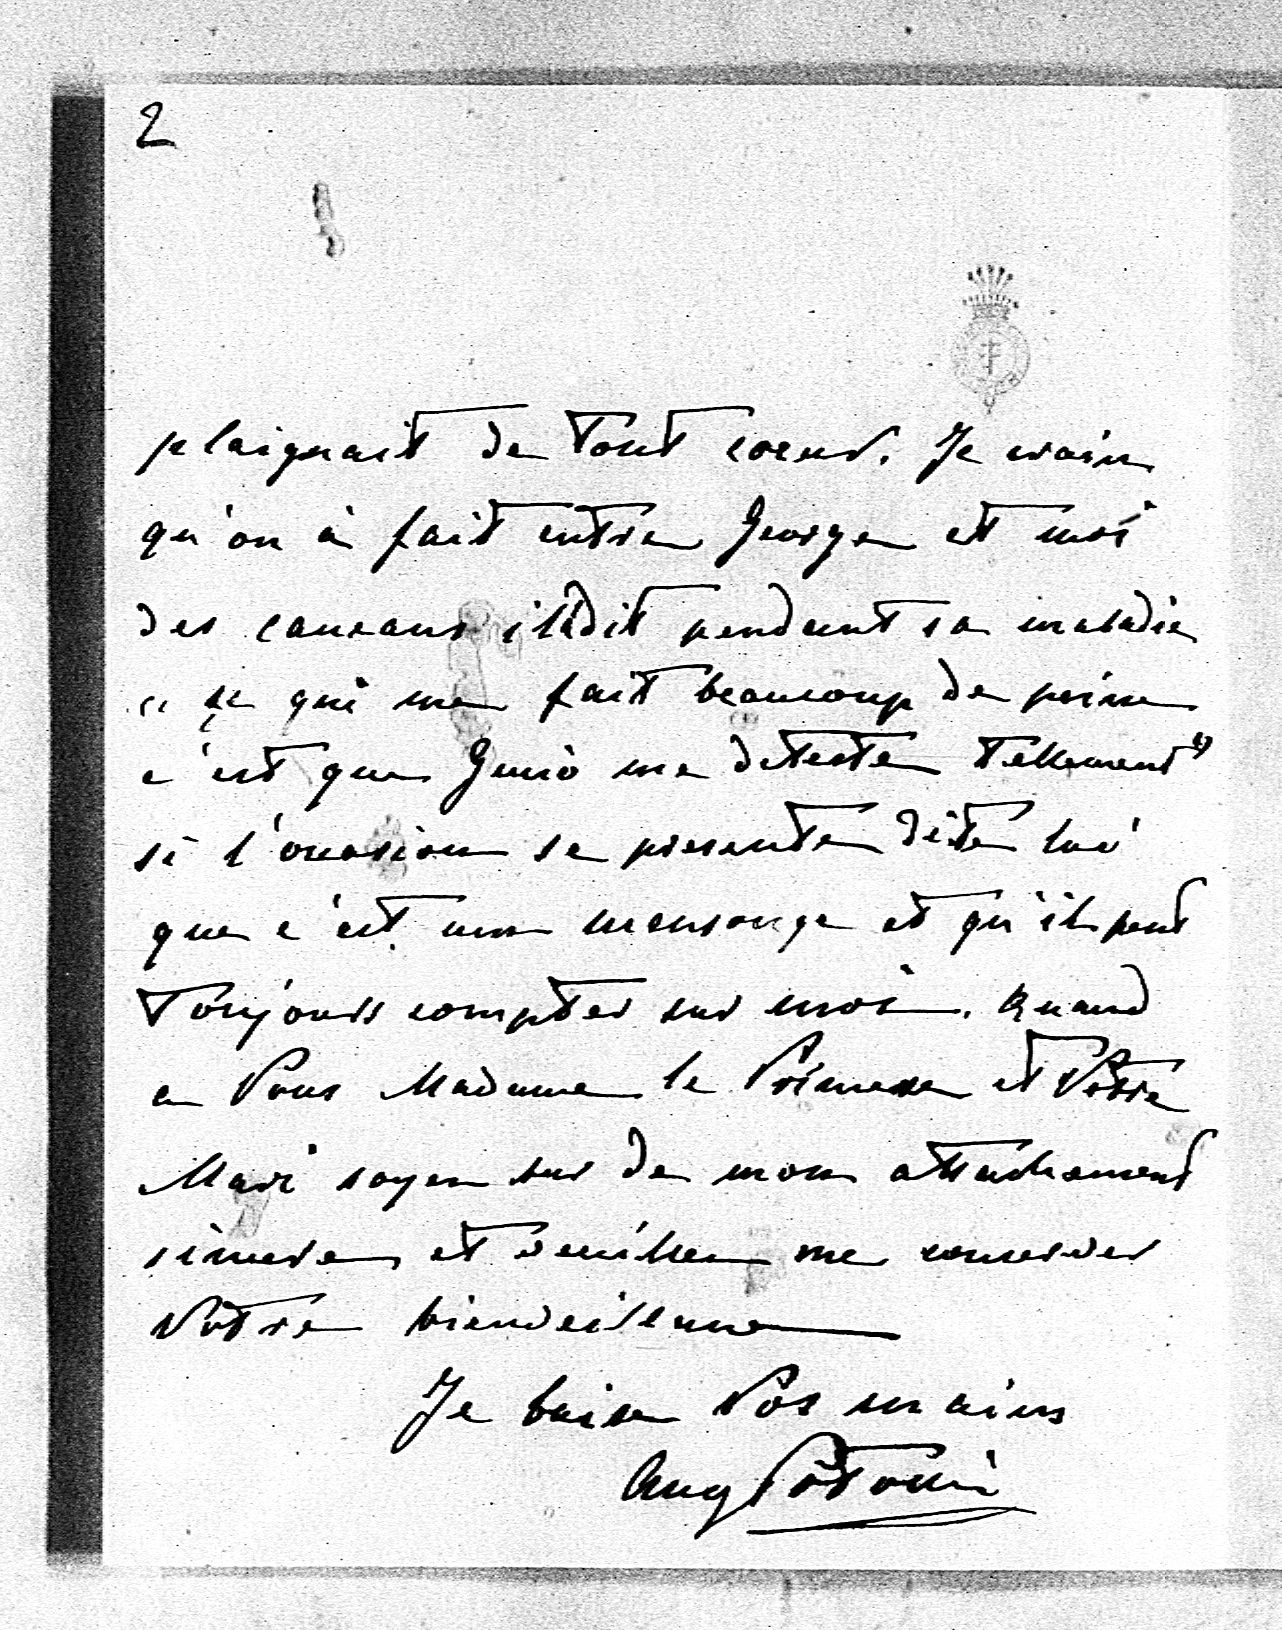 2
plaignait de tout coeur. Je crains
qu'on à fait entre George et moi
des cancans il dit pendant sa maladie
" ce qui me fait beaucoup de peine
c'est que Gucio me deteste tellement "
si l'occasion se presente dite lui
que c'est un mensonge et qu'il peut
toujours compter sur moi. Quand
a Vous Madame la Princesse et Votre
Mari soyez sur de mon attachement
sincere et veuillez me conserver
Votre bienveillance
Je baise Vos mains
Aug Potocki